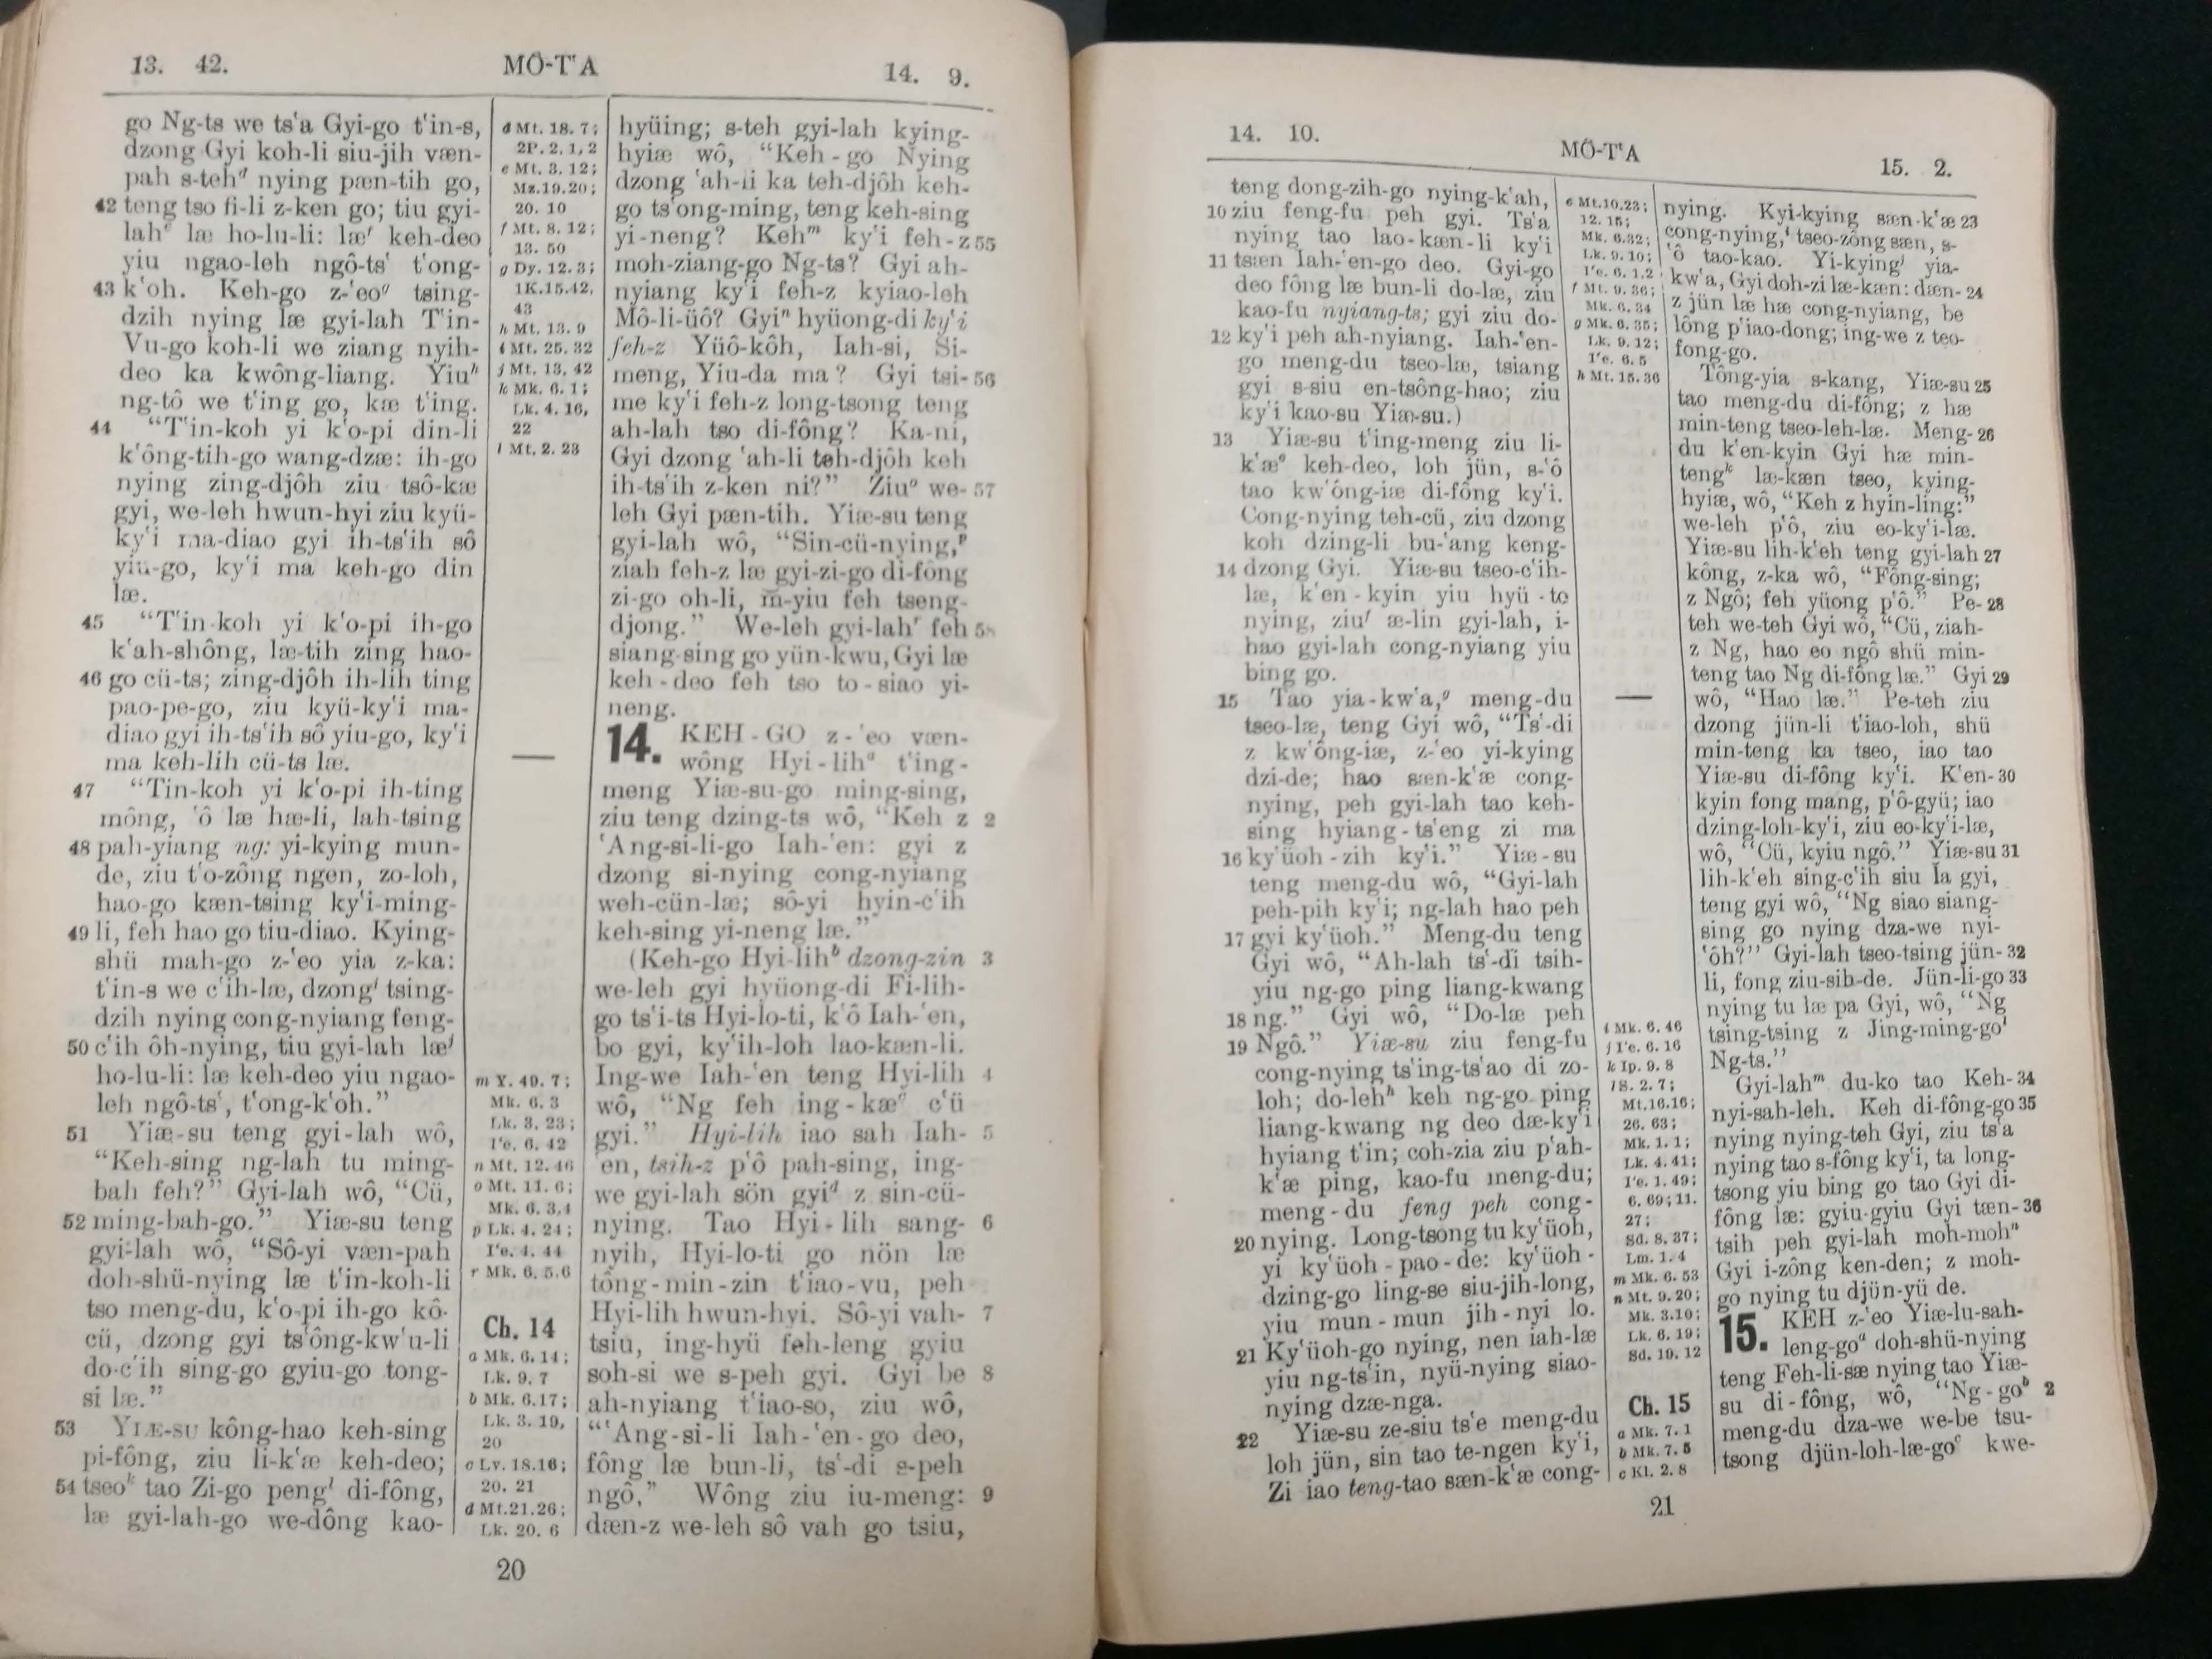 13. 42.
MÔ-T'A
14. 9.
go Ng-ts we ts'a Gyi-go t'in-s,
dzong Gyi koh-li siu-jih væn-
pah s-teh^d nying pæn-tih go,
42 teng tso fi-li z-ken go; tiu gyi-
lah^e læ ho-lu-li: læ^f keh-deo
yiu ngao-leh ngô-ts' t'ong-
43 k'oh. Keh-go z-'eo^g tsing-
dzih nying læ gyi-lah T'in-
Vu-go koh-li we ziang nyih-
deo ka kwông-liang. Yiu^h
ng-tô we t'ing go, kæ t'ing.
44 “T'in-koh yi k'o-pi din-li
k'ông-tih-go wang-dzæ: ih-go
nying zing-djôh ziu tsô-kæ
gyi, we-leh hwun-hyi ziu kyü-
ky'i ma-diao gyi ih-ts'ih sô
yiu-go, ky'i ma keh-go din
læ.
45 “T'in-koh yi k'o-pi ih-go
k'ah-shông, læ-tih zing hao-
46 go cü-ts; zing-djôh ih-lih ting
pao-pe-go, ziu kyü-ky'i ma-
diao gyi ih-ts'ih sô yiu-go, ky'i
ma keh-lih cü-ts læ.
47 “Tin-koh yi k'o-pi ih-ting
mông, 'ô læ hæ-li, lah-tsing
48 pah-yiang ng: yi-kying mun-
de, ziu t'o-zông ngen, zo-loh,
hao-go kæn-tsing ky'i-ming-
49 li, feh hao go tiu-diao. Kying-
shü mah-go z-'eo yia z-ka:
t'in-s we c'ih-læ, dzong^i tsing-
dzih nying cong-nyiang feng-
50 c'ih ôh-nying, tiu gyi-lah læ^j
ho-lu-li: læ keh-deo yiu ngao-
leh ngô-ts', t'ong-k'oh.”
51 Yiæ-su teng gyi-lah wô,
“Keh-sing ng-lah tu ming-
bah feh?” Gyi-lah wô, “Cü,
52 ming-bah-go.” Yiæ-su teng
gyi-lah wô, “Sô-yi væn-pah
doh-shü-nying læ t'in-koh-li
tso meng-du, k'o-pi ih-go kô-
cü, dzong gyi ts'ông-kw'u-li
do-c'ih sing-go gyiu-go tong-
si læ.”
53 YIÆ-SU kông-hao keh-sing
pi-fông, ziu li-k'æ keh-deo;
54 tseo^k tao Zi-go peng^l di-fông,
læ gyi-lah-go we-dông kao-
d Mt. 18. 7;
2P. 2. 1, 2
e Mt. 3. 12;
Mz. 19. 20;
20. 10
f Mt. 8. 12;
13. 50
g Dy. 12. 3;
1K. 15. 42,
43
h Mt. 13. 9
i Mt. 25. 32
j Mt. 13. 42
k Mk. 6. 1;
Lk. 4. 16,
22
l Mt. 2. 23
m Y. 49. 7;
Mk. 6. 3
Lk. 3. 23;
I'e. 6. 42
n Mt. 12. 46
o Mt. 11. 6;
Mk. 6. 3,4
p Lk. 4. 24;
I'e. 4. 44
r Mk. 6. 5.6
Ch. 14
a Mk. 6. 14;
Lk. 9. 7
b Mk. 6.17;
Lk. 3. 19,
20
c Lv. 18.16;
20. 21
d Mt.21.26;
Lk. 20. 6
hyüing; s-teh gyi-lah kying-
hyiæ wô, “Keh-go Nying
dzong 'ah-li ka teh-djôh keh-
go ts'ong-ming, teng keh-sing
yi-neng? Keh^m ky'i feh-z 55
moh-ziang-go Ng-ts? Gyi ah-
nyiang ky'i feh-z kyiao-leh
Mô-li-üô? Gyi^n hyüong-di ky'i
feh-z Yüô-kôh, Iah-si, Si-
meng, Yiu-da ma? Gyi tsi- 56
me ky'i feh-z long-tsong teng
ah-lah tso di-fông? Ka-ni,
Gyi dzong 'ah-li teh-djôh keh
ih-ts'ih z-ken ni?” Ziu^o we- 57
leh Gyi pæn-tih. Yiæ-su teng
gyi-lah wô, “Sin-cü-nying,^p
ziah feh-z læ gyi-zi-go di-fong
zi-go oh-li, m̄-yiu feh tseng-
djong.” We-leh gyi-lah^r feh 58
siang-sing go yün-kwu, Gyi læ
keh-deo feh tso to-siao yi-
neng.
14. KEH-GO z-'eo væn-
wông Hyi-lih^a t'ing-
meng Yiæ-su-go ming-sing,
ziu teng dzing-ts wô, “Keh z 2
'Ang-si-li-go Iah-'en: gyi z
dzong si-nying cong-nyiang
weh-cün-læ; sô-yi hyin-c'ih
keh-sing yi-neng læ.”
(Keh-go Hyi-lih^b dzong-zin 3
we-leh gyi hyüong-di Fi-lih-
go ts'i-ts Hyi-lo-ti, k'ô Iah-'en,
bo gyi, ky'ih-loh lao-kæn-li.
Ing-we Iah-'en teng Hyi-lih 4
wô, “Ng feh ing-kæ^c c'ü
gyi.” Hyi-lih iao sah Iah- 5
'en, tsih-z p'ô pah-sing, ing-
we gyi-lah sön gyi^d z sin-cü-
nying. Tao Hyi-lih sang- 6
nyih, Hyi-lo-ti go nön læ
tông-min-zin t'iao-vu, peh
Hyi-lih hwun-hyi. Sô-yi vah- 7
tsiu, ing-hyü feh-leng gyiu
soh-si we s-peh gyi. Gyi be 8
ah-nyiang t'iao-so, ziu wô,
“'Ang-si-li Iah-'en-go deo,
fông læ bun-li, ts'-di s-peh
ngô,” Wông ziu iu-meng: 9
dæn-z we-leh sô vah go tsiu,
20
14. 10.
MÔ-T'A
15. 2.
teng dong-zih-go nying-k'ah,
10 ziu feng-fu peh gyi. Ts'a
nying tao lao-kæn-li ky'i
11 tsæn Iah-'en-go deo. Gyi-go
deo fông læ bun-li do-læ, ziu
kao-fu nyiang-ts; gyi ziu do-
12 ky'i peh ah-nyiang. Iah-'en-
go meng-du tseo-læ, tsiang
gyi s-siu en-tsông-hao; ziu
ky'i kao-su Yiæ-su.)
13 Yiæ-su t'ing-meng ziu li-
k'æ^e keh-deo, loh jün, s-'ô
tao kw'ông-iæ di-fông ky'i.
Cong-nying teh-cü, ziu dzong
koh dzing-li bu-'ang keng-
14 dzong Gyi. Yiæ-su tseo-c'ih-
læ, k'en-kyin yiu hyü-to
nying, ziu^f æ-lin gyi-lah, i-
hao gyi-lah cong-nyiang yiu
bing go.
15 Tao yia-kw'a,^g meng-du
tseo-læ, teng Gyi wô, “Ts'-di
z kw'ông-iæ, z-'eo yi-kying
dzi-de; hao sæn-k'æ cong-
nying, peh gyi-lah tao keh-
sing hyiang-ts'eng zi ma
16 ky'üoh-zih ky'i.” Yiæ-su
teng meng-du wô, “Gyi-lah
peh-pih ky'i; ng-lah hao peh
17 gyi ky'üoh.” Meng-du teng
Gyi wô, “Ah-lah ts'-di tsih-
yiu ng-go ping liang-kwang
18 ng.” Gyi wô, “Do-læ peh
19 Ngô.” Yiæ-su ziu feng-fu
cong-nying ts'ing-ts'ao di zo-
loh; do-leh^h keh ng-go ping
liang-kwang ng deo dæ-ky'i
hyiang t'in; coh-zia ziu p'ah-
k'æ ping, kao-fu meng-du;
meng-du feng peh cong-
20 nying. Long-tsong tu ky'üoh,
yi ky'üoh-pao-de: ky'üoh-
dzing-go ling-se siu-jih-long,
yiu mun-mun jih-nyi lo.
21 Ky'üoh-go nying, nen iah-læ
yiu ng-ts'in, nyü-nying siao-
nying dzæ-nga.
22 Yiæ-su ze-siu ts'e meng-du
loh jün, sin tao te-ngen ky'i,
Zi iao teng-tao sæn-k'æ cong-
e Mt.10.23;
12. 15;
Mk. 6.32;
Lk. 9. 10;
I'e. 6. 1.2
f Mt. 9. 36;
Mk. 6. 34
g Mk. 6. 35;
Lk. 9. 12;
I'e. 6. 5
h Mt. 15. 36
i Mk. 6. 46
j I'e. 6. 16
k Ip. 9. 8
l S. 2. 7;
Mt.16.16;
26. 63;
Mk. 1. 1;
Lk. 4. 41;
I'e. 1. 49;
6. 69; 11.
27;
Sd. 8. 37;
Lm. 1. 4
m Mk. 6. 53
n Mt. 9. 20;
Mk. 3.10;
Lk. 6. 19;
Sd. 19. 12
Ch. 15
a Mk. 7. 1
b Mk. 7. 5
c Kl. 2. 8
nying. Kyi-kying sæn-k'æ 23
cong-nying,^i tseo-zông sæn, s-
'ô tao-kao. Yi-kying^j yia-
kw'a, Gyi doh-zi læ-kæn: dæn- 24
z jün læ hæ cong-nyiang, be
lông p'iao-dong; ing-we z teo-
fong-go.
Tông-yia s-kang, Yiæ-su 25
tao meng-du di-fông; z hæ
min-teng tseo-leh-læ. Meng- 26
du k'en-kyin Gyi hæ min-
teng^k læ-kæn tseo, kying-
hyiæ, wô, “Keh z hyin-ling:”
we-leh p'ô, ziu eo-ky'i-læ.
Yiæ-su lih-k'eh teng gyi-lah 27
kông, z-ka wô, “Fông-sing;
z Ngô; feh yüong p'ô.” Pe- 28
teh we-teh Gyi wô, “Cü, ziah-
z Ng, hao eo ngô shü min-
teng tao Ng di-fông læ.” Gyi 29
wô, “Hao læ.” Pe-teh ziu
dzong jün-li t'iao-loh, shü
min-teng ka tseo, iao tao
Yiæ-su di-fông ky'i. K'en- 30
kyin fong mang, p'ô-gyü; iao
dzing-loh-ky'i, ziu eo-ky'i-læ,
wô, “Cü, kyiu ngô.” Yiæ-su 31
lih-k'eh sing-c'ih siu la gyi,
teng gyi wô, “Ng siao siang-
sing go nying dza-we nyi-
'ôh?” Gyi-lah tseo-tsing jün- 32
li, fong ziu-sih-de. Jün-li-go 33
nying tu læ pa Gyi, wô, “Ng
tsing-tsing z Jing-ming-go^l
Ng-ts.”
Gyi-lah^m du-ko tao Keh- 34
nyi-sah-leh. Keh di-fông-go 35
nying nying-teh Gyi, ziu ts'a
nying tao s-fông ky'i, ta long-
tsong yiu bing go tao Gyi di-
fông læ: gyiu-gyiu Gyi tæn- 36
tsih peh gyi-lah moh-moh^n
Gyi i-zông ken-den; z moh-
go nying tu djün-yü de.
15. KEH z-'eo Yiæ-lu-sah-
leng-go^a doh-shü-nying
teng Feh-li-sæ nying tao Yiæ-
su di-fông, wô, “Ng-go^b 2
meng-du dza-we we-be tsu-
tsong djün-loh-læ-go^c kwe-
21